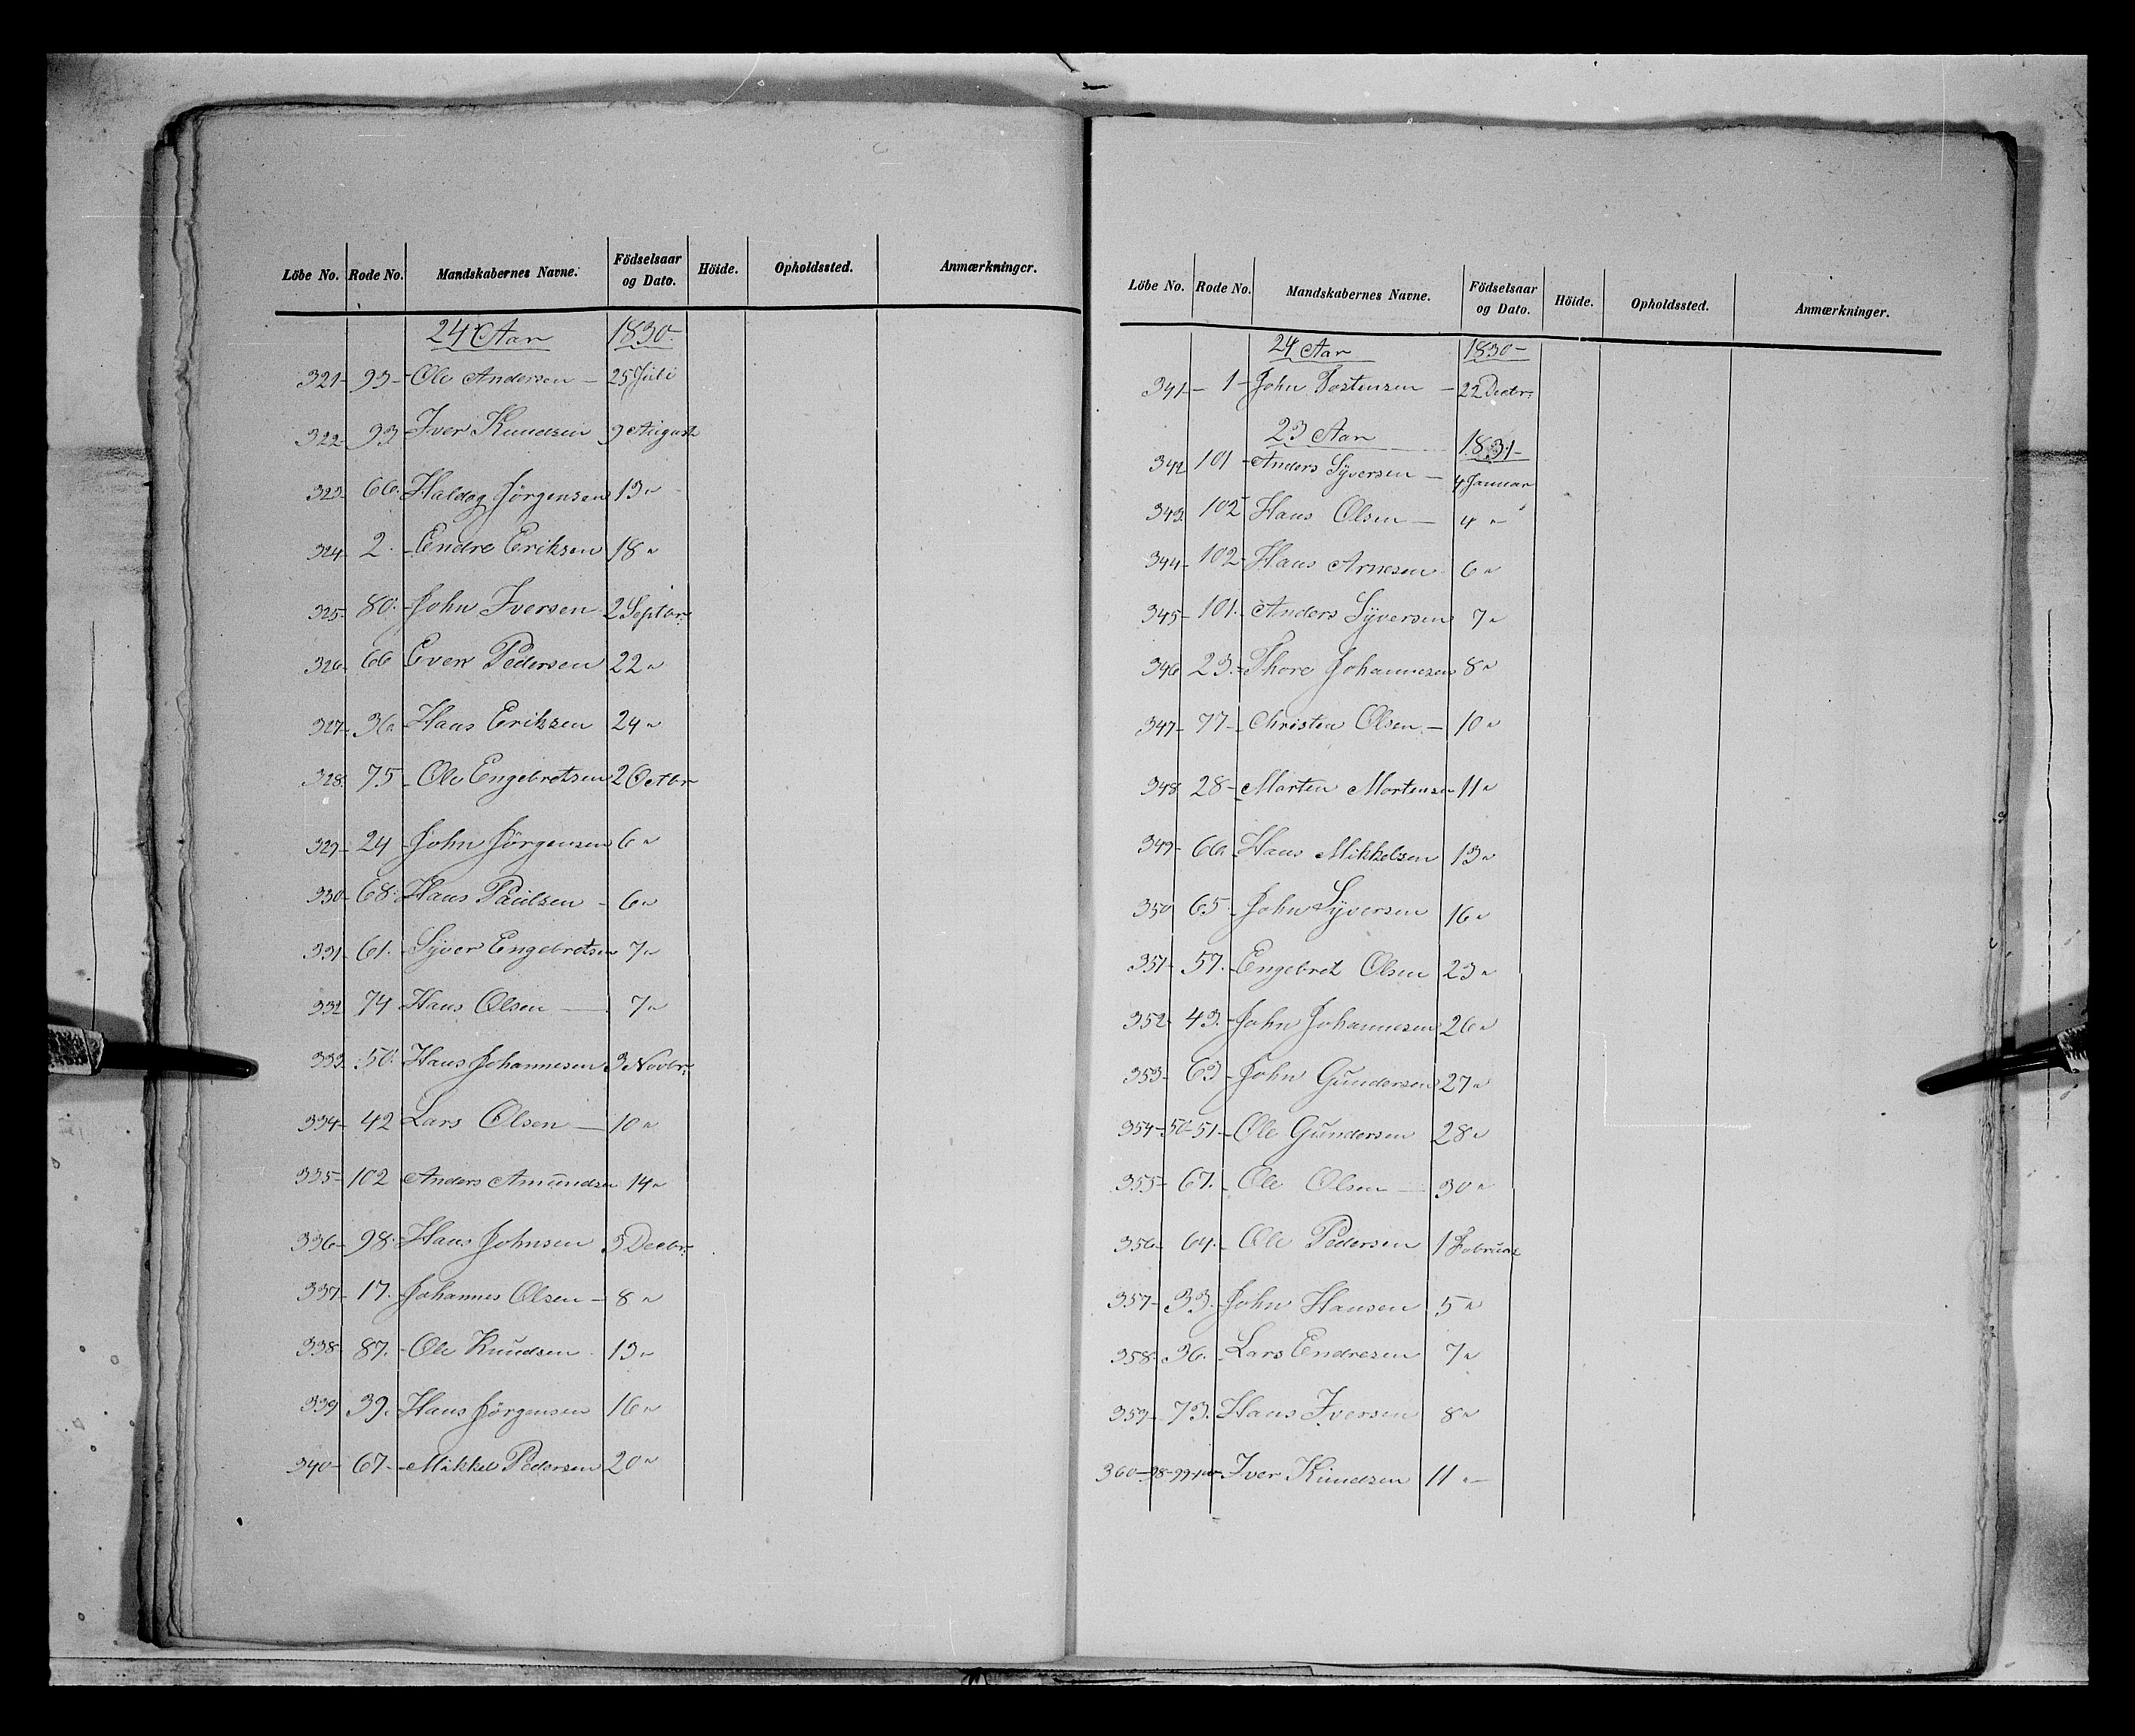 Löbe No. Rode No. Mandskabernes Navne. Födselsaar og Dato. Höide. Opholdssted. Anmærkninger.
24 Aar 1830-
321- 93- Ole Andersen - 25 Juli
322- 93 Iver Knudsen 9 August
323 66. Haldog Jörgensen 13 "
324- 2. Endre Eriksen 18 "
325- 80. John Iversen 2 Septbr:
326. 66 Even Pedersen 22 "
327- 36 Hans Eriksen 24 "
328. 75 Ole Engebretsen 2 Octbr
329- 24 John Jörgensen 6 "
330- 68. Hans Paulsen - 6 "
331- 61. Syver Engebretsen 7 "
332 74 Hans Olsen - 7 "
333- 50. Hans Johannesen 3 Novbr:
334- 42 Lars Olsen - 10 "
335- 102 Anders Amundsen 14 "
336- 98. Hans Johnsen 5 Decbr:
337- 17. Johannes Olsen - 8 "
338- 87. Ole Knudsen 13 "
339 39. Hans Jörgensen 16 "
340- 67- Mikkel Pedersen 20 "
Löbe No. Rode No. Mandskabernes Navne. Födselsaar og Dato. Höide. Opholdssted. Anmærkninger.
24 Aar 1830-
341- 1- John Tostensen - 22 Decbr:
23 Aar 1831-
342 101 - Anders Syversen - 4 Januar
343. 102 Hans Olsen - 4 "
344- 102- Hans Arnesen 6 "
345- 101. Anders Syversen 7 "
346 23. Thore Johannesen 8 "
347- 77- Christen Olsen - 10 "
348 28- Marten Mortensen 11 "
349- 66. Hans Mikkelsen 13 "
350 65. John Syversen 16 "
351- 57. Engebret Olsen 23 "
352- 43. John Johannesen 26 "
353- 63- John Gundersen 27 "
354- 50-51- Ole Gundersen 28 "
355- 67. Ole Olsen - 30 "
356- 64. Ole Pedersen 1 Februar
357- 33. John Hansen 5 "
358- 36. Lars Endresen 7 "
359- 73. Hans Iversen 8 "
360- 98-99-100 Iver Knudsen 11 " -